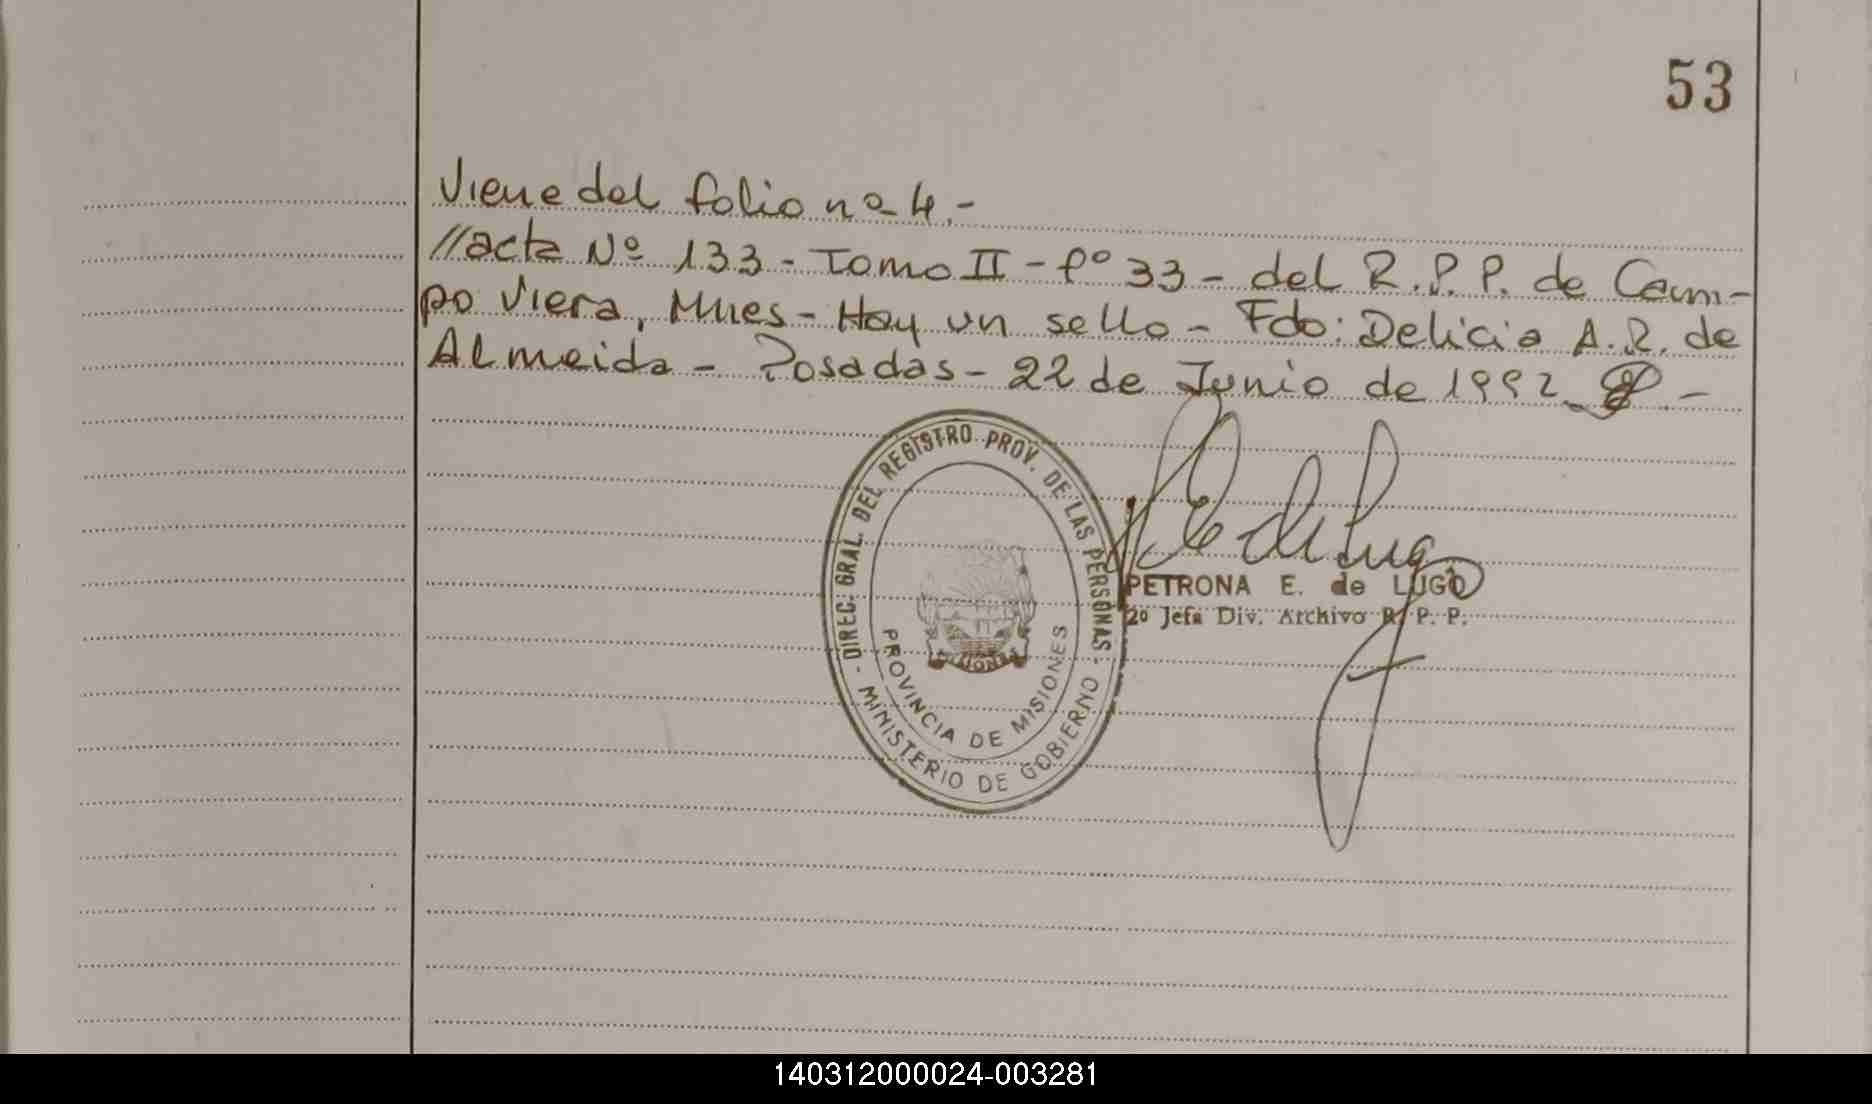 53
Viene del folio nº 4.-
//acta Nº 133 - Tomo II - fº 33 - del R.P.P. de Cam-
po Viera, Mnes - Hay un sello - Fdo: Delicia A.R. de
Almeida - Posadas - 22 de Junio de 1992 -
- DIREC. GRAL. DEL REGISTRO PROV. DE LAS PERSONAS -
MINISTERIO DE GOBIERNO
PROVINCIA DE MISIONES
MISIONES
PETRONA E. de LUGO
2º Jefa Div. Archivo R. P. P.
140312000024-003281